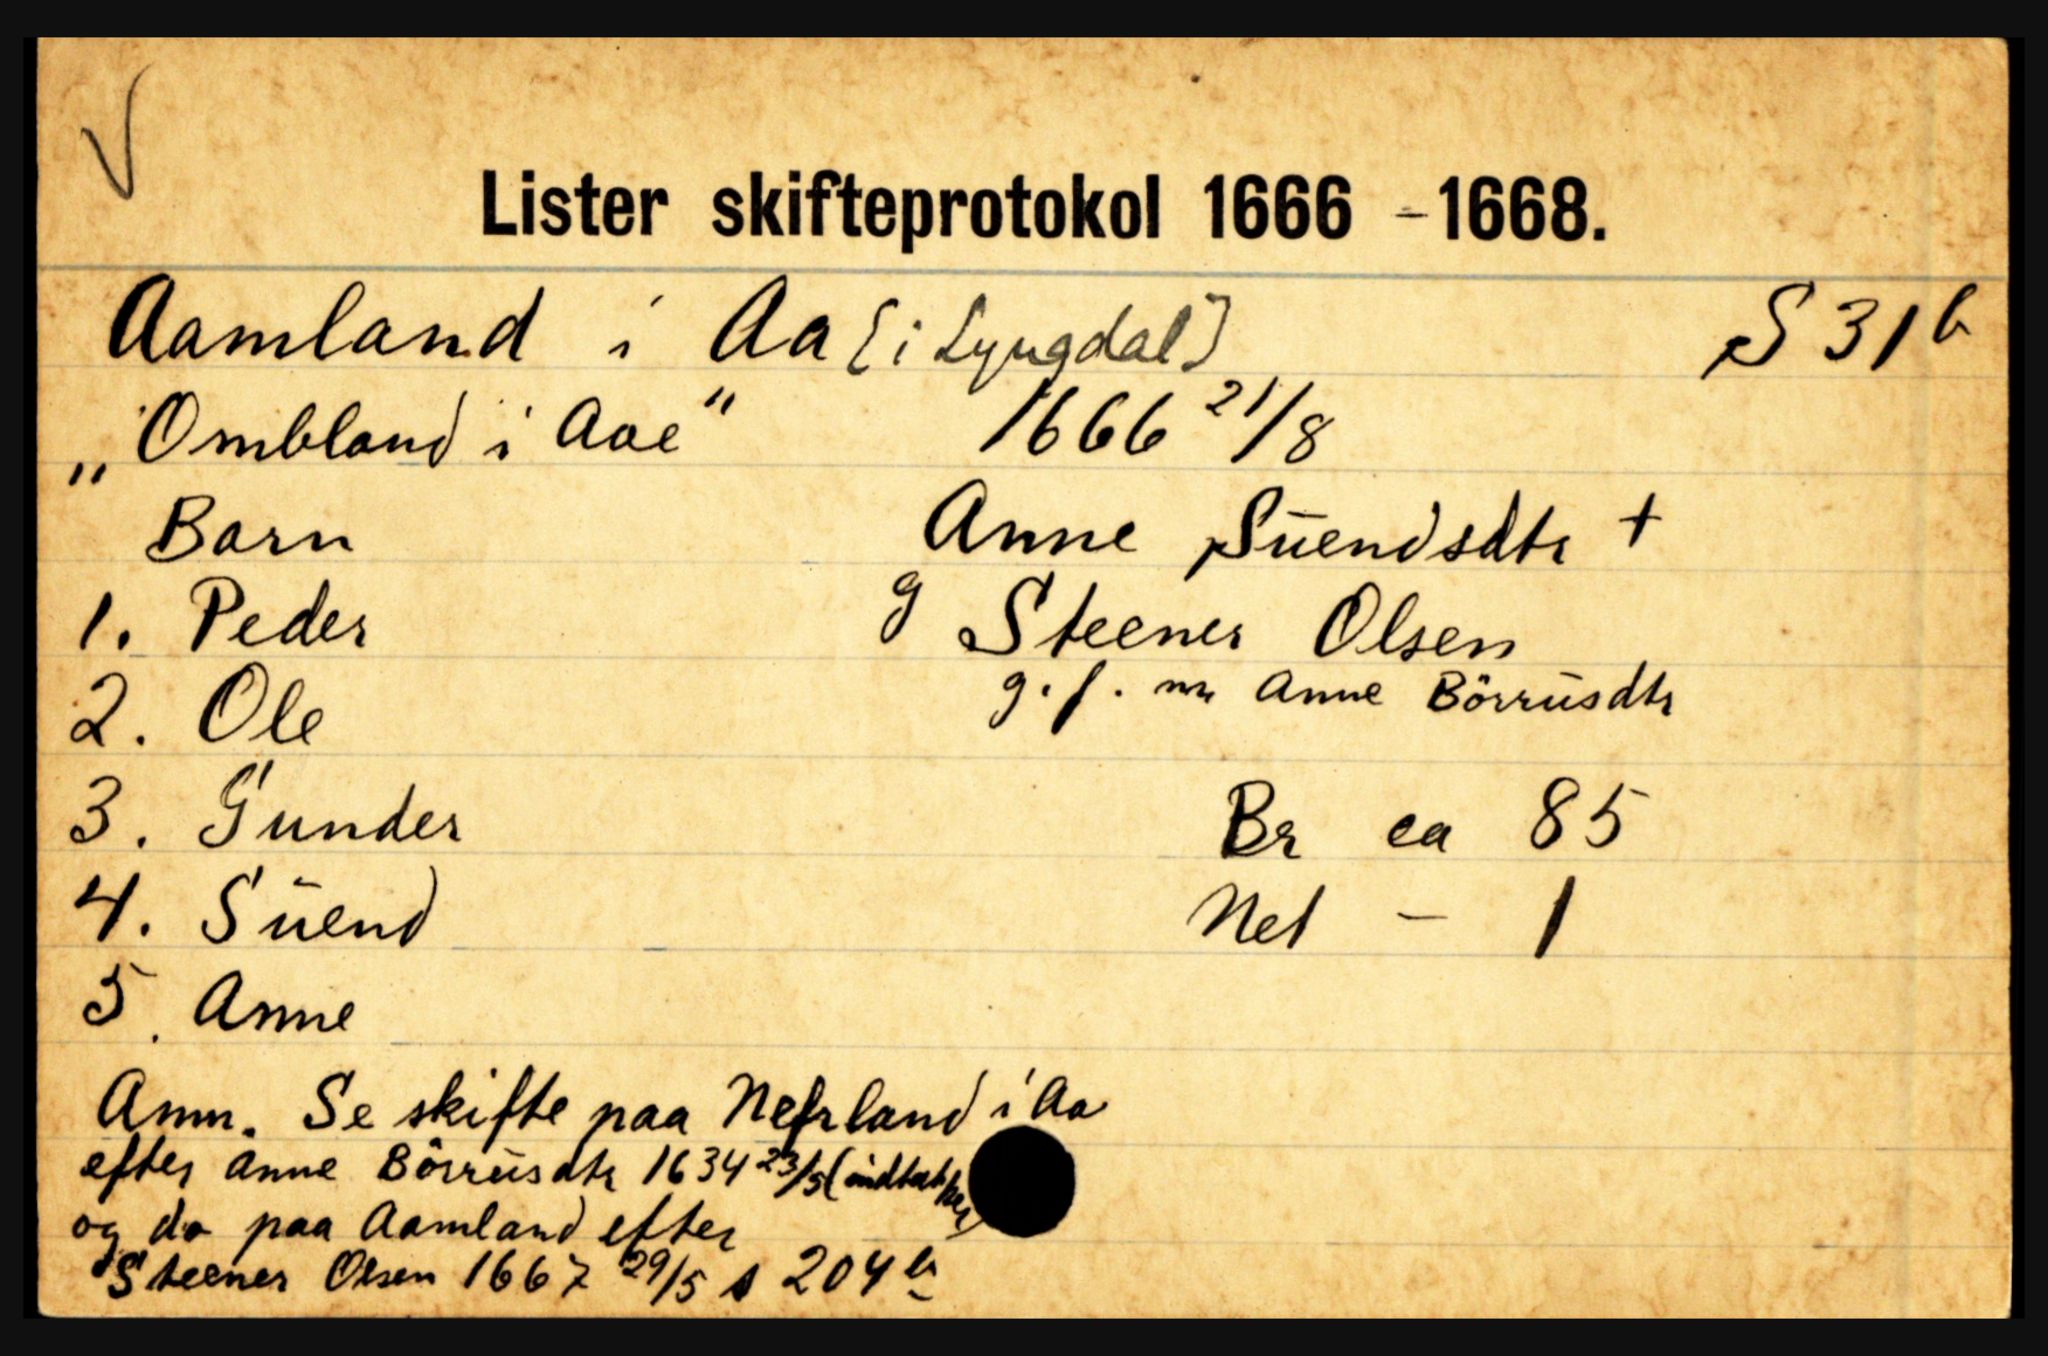 Lister skifteprotokol 1666 - 1668.
Aamland i Aa [i Lyngdal] S 31b
„Ombland i Aae" 1666 21/8
Barn Anne Süendsdtr +
1. Peder g Steener Olsen
2. Ole g.f. m Anne Börrüsdtr
3. Gunder Br ca 85
4. Süend Net - 1
5. Anne
Anm. Se skifte paa Nefland i Aa
efter Anne Börrüsdtr 1634 23/5
og do paa Aamland efter
Steener Olsen 1667 29/5 s 204b